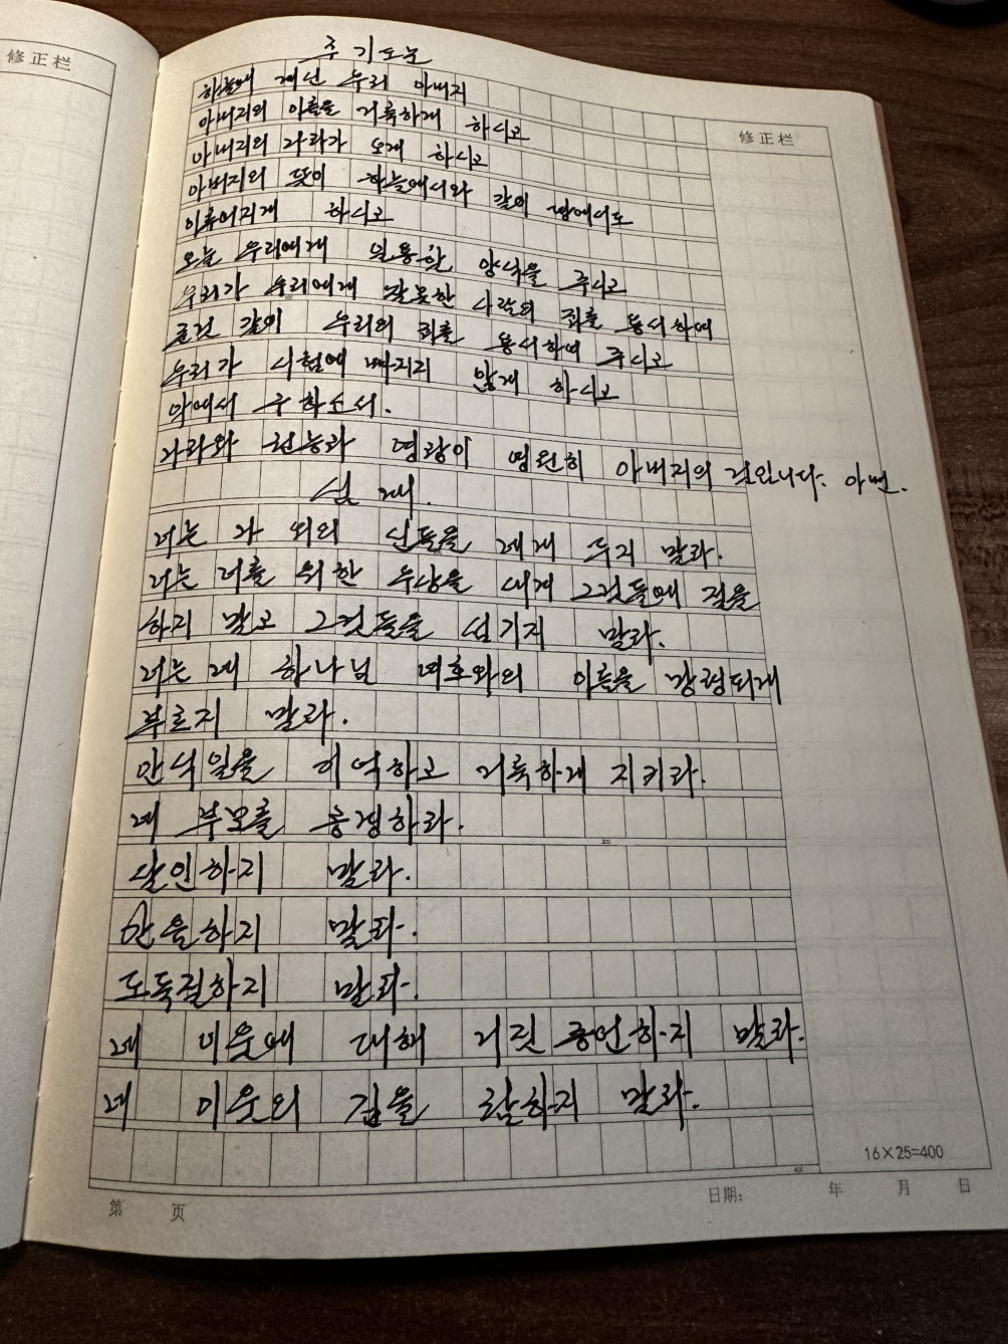 修正栏
주기도문
하늘에 계신 우리 아버지
아버지의 이름을 거룩하게 하시고
修正栏
아버지의 나라가 오게 하시고
아버지의 뜻이 하늘에서와 같이 땅에서도
이루어지게 하시고
오늘 우리에게 일용할 양식을 주시고
우리가 우리에게 잘못한 사람의 죄를 용서하여
준것 같이 우리의 죄를 용서하여 주시고
우리가 시험에 빠지지 않게 하시고
악에서 구하소서.
나라와 권능과 영광이 영원히 아버지의 것입니다. 아멘.
십계.
너는 나 외의 신들을 네게 두지 말라.
너는 너를 위한 우상을 새겨 그것들에 절을
하지 말고 그것들을 섬기지 말라.
너는 네 하나님 여호와의 이름을 망령되게
부르지 말라.
안식일을 기억하고 거룩하게 지키라.
네 부모를 공경하라.
살인하지 말라.
간음하지 말라.
도둑질하지 말라.
네 이웃에 대해 거짓 증언하지 말라.
네 이웃의 집을 탐하지 말라.
16×25=400
第 页 日期: 年 月 日